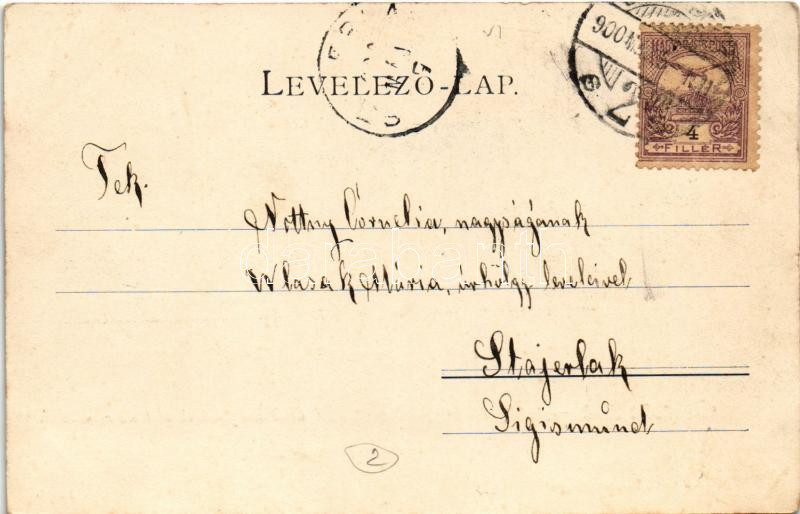 LEVELEZŐ-LAP.
900
4
FILLÉR
Tek.
Nottny Córnelia, nagyságának
Wlasak Mária, úrhölgy leveleivel
Stájerlak
Sigismund
2